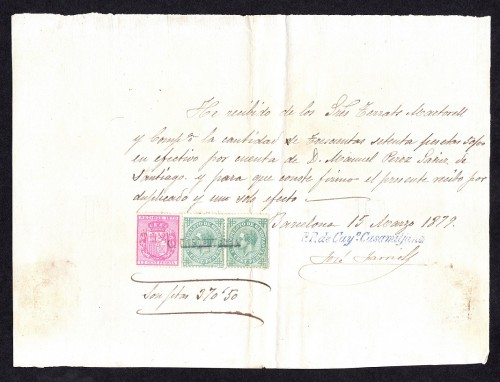 He recibido de los Sres Torrats Martorell
y Comp.ª la cantidad de trescientas setenta pesetas 50 cs
en efectivo por cuenta de D. Manuel Pérez Sáenz de
Santiago. y para que conste firmo el presente recibo por
duplicado y un solo efecto
Barcelona 15 Marzo 1879.
P.P. de Cuy.ª Casamitjana
José
Son ptas 370'50